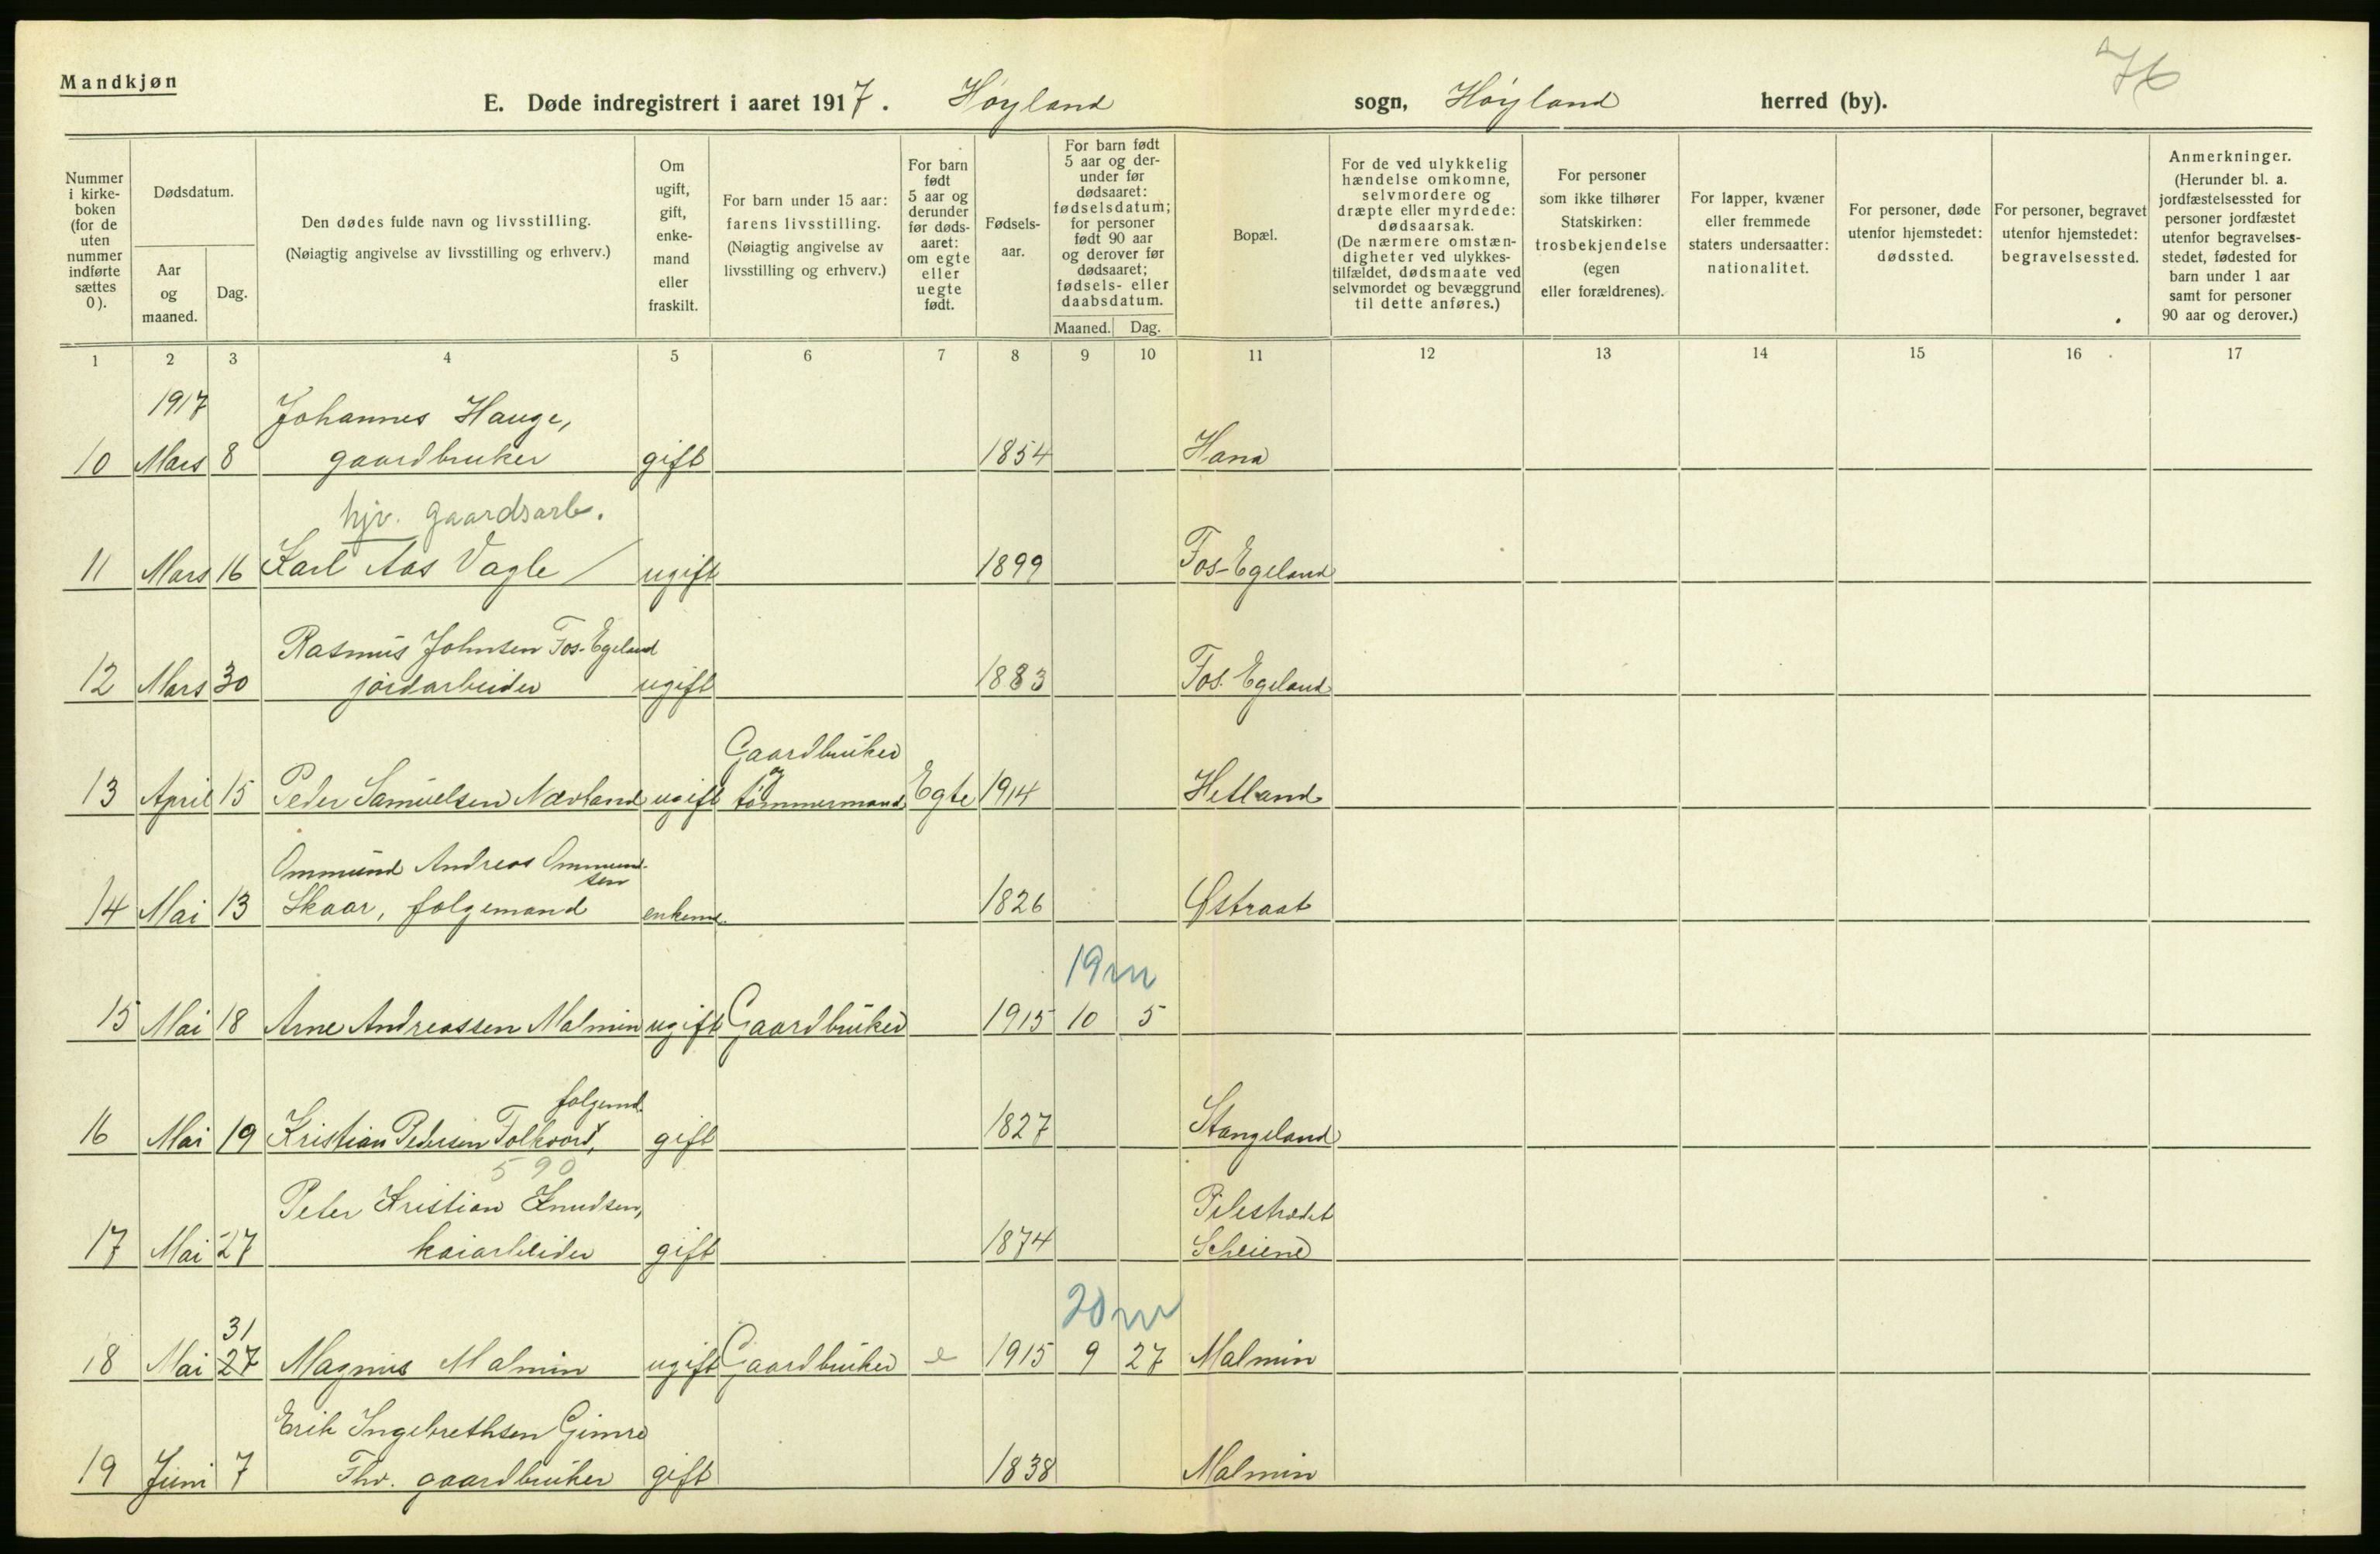 Mandkjøn
76
E. Døde indregistrert i aaret 1917. Høyland sogn, Høyland herred (by).
Nummer i kirkeboken (for de uten nummer indførte sættes 0).
Dødsdatum.
Aar og maaned.
Dag.
Den dødes fulde navn og livsstilling.
(Nøiagtig angivelse av livsstilling og erhverv.)
Om ugift, gift, enkemand eller fraskilt.
For barn under 15 aar: farens livsstilling.
(Nøiagtig angivelse av livsstilling og erhverv.)
For barn født 5 aar og derunder før dødsaaret: om egte eller uegte født.
Fødselsaar.
For barn født 5 aar og derunder før dødsaaret: fødselsdatum; for personer født 90 aar og derover før dødsaaret; fødsels- eller daabsdatum.
Maaned. Dag.
Bopæl.
For de ved ulykkelig hændelse omkomne, selvmordere og dræpte eller myrdede: dødsaarsak.
(De nærmere omstændigheter ved ulykkestilfældet, dødsmaate ved selvmordet og bevæggrund til dette anføres.)
For personer som ikke tilhører Statskirken: trosbekjendelse (egen eller forældrenes).
For lapper, kvæner eller fremmede staters undersaatter: nationalitet.
For personer, døde utenfor hjemstedet: dødssted.
For personer, begravet utenfor hjemstedet: begravelsessted.
Anmerkninger.
(Herunder bl. a. jordfæstelsessted for personer jordfæstet utenfor begravelsesstedet, fødested for barn under 1 aar samt for personer 90 aar og derover.)
1 2 3 4 5 6 7 8 9 10 11 12 13 14 15 16 17
1917 Johannes Hauge,
10 Mars 8 gaardbruker gift 1854 Hana
hjv. gaardsarb.
11 Mars 16 Karl Aas Vagle / ugift 1899 Fos-Egeland
Rasmus Johnsen Fos-Egeland
12 Mars 30 jordarbeider ugift 1883 Fos-Egeland
Gaardbruker
og
13 April 15 Peder Samuelsen Nævland ugift tømmermand Egte 1914 Hetland
Ommund Andreas Ommund-
sen
14 Mai 13 Skaar, følgemand enkem. 1826 Østraat
19 m
15 Mai 18 Arne Andreassen Malmin ugift Gaardbruker 1915 10 5
følgemd.
16 Mai 19 Kristian Pedersen Folkvord, gift 1827 Stangeland
590
Peter Kristian Knudsen, Pilestrædet
17 Mai 27 kaiarbeider gift 1874 Scheiene
31 20 m
18 Mai 27 Magnus Malmin ugift Gaardbruker e 1915 9 27 Malmin
Erik Ingebrethsen Gimre
19 Juni 7 Fhv. gaardbruker gift 1838 Malmin